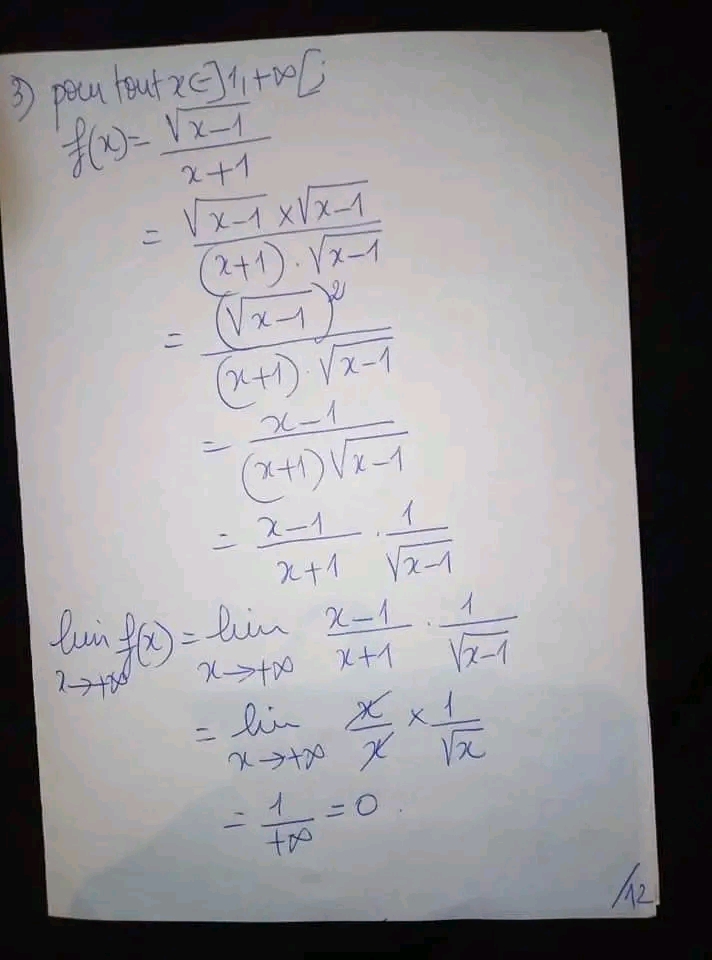 3) pour tout x ∈ ]1, +∞[;
f(x) = √(x-1) / (x+1)
= (√(x-1) × √(x-1)) / ((x+1) · √(x-1))
= (√(x-1))² / ((x+1) · √(x-1))
= (x-1) / ((x+1)√(x-1))
= (x-1)/(x+1) · 1/√(x-1)
lim x→+∞ f(x) = lim x→+∞ (x-1)/(x+1) · 1/√(x-1)
= lim x→+∞ x/x × 1/√x
= 1/+∞ = 0.
/12